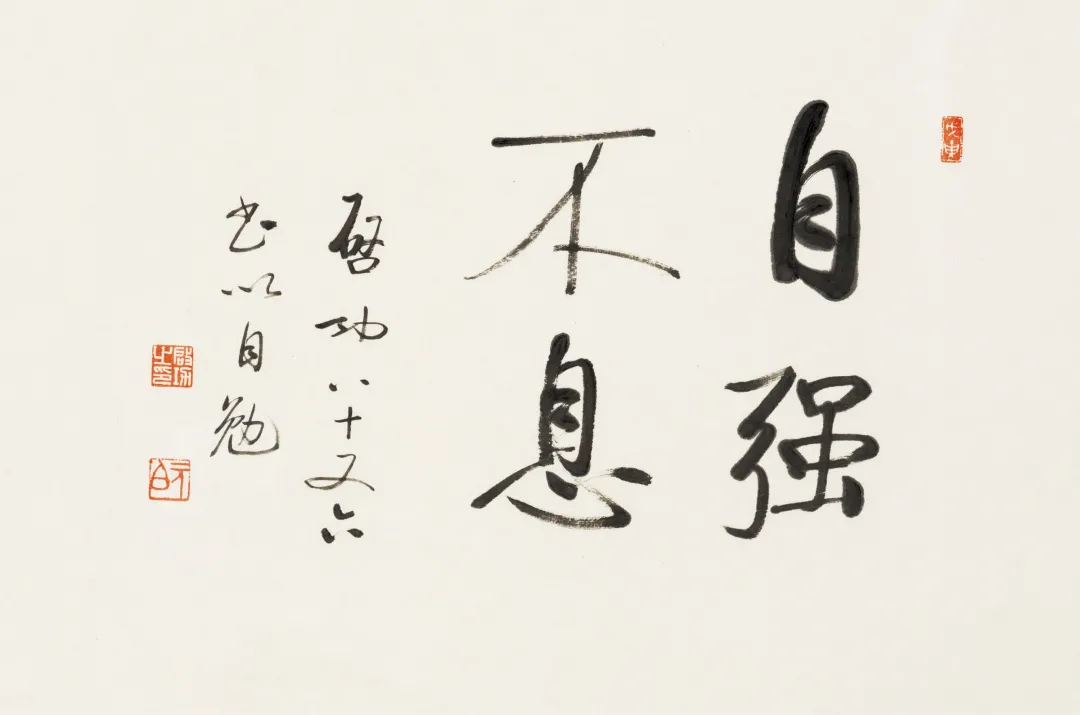 自强
不息
啓功八十又六
书以自勉
啓功之印
元白